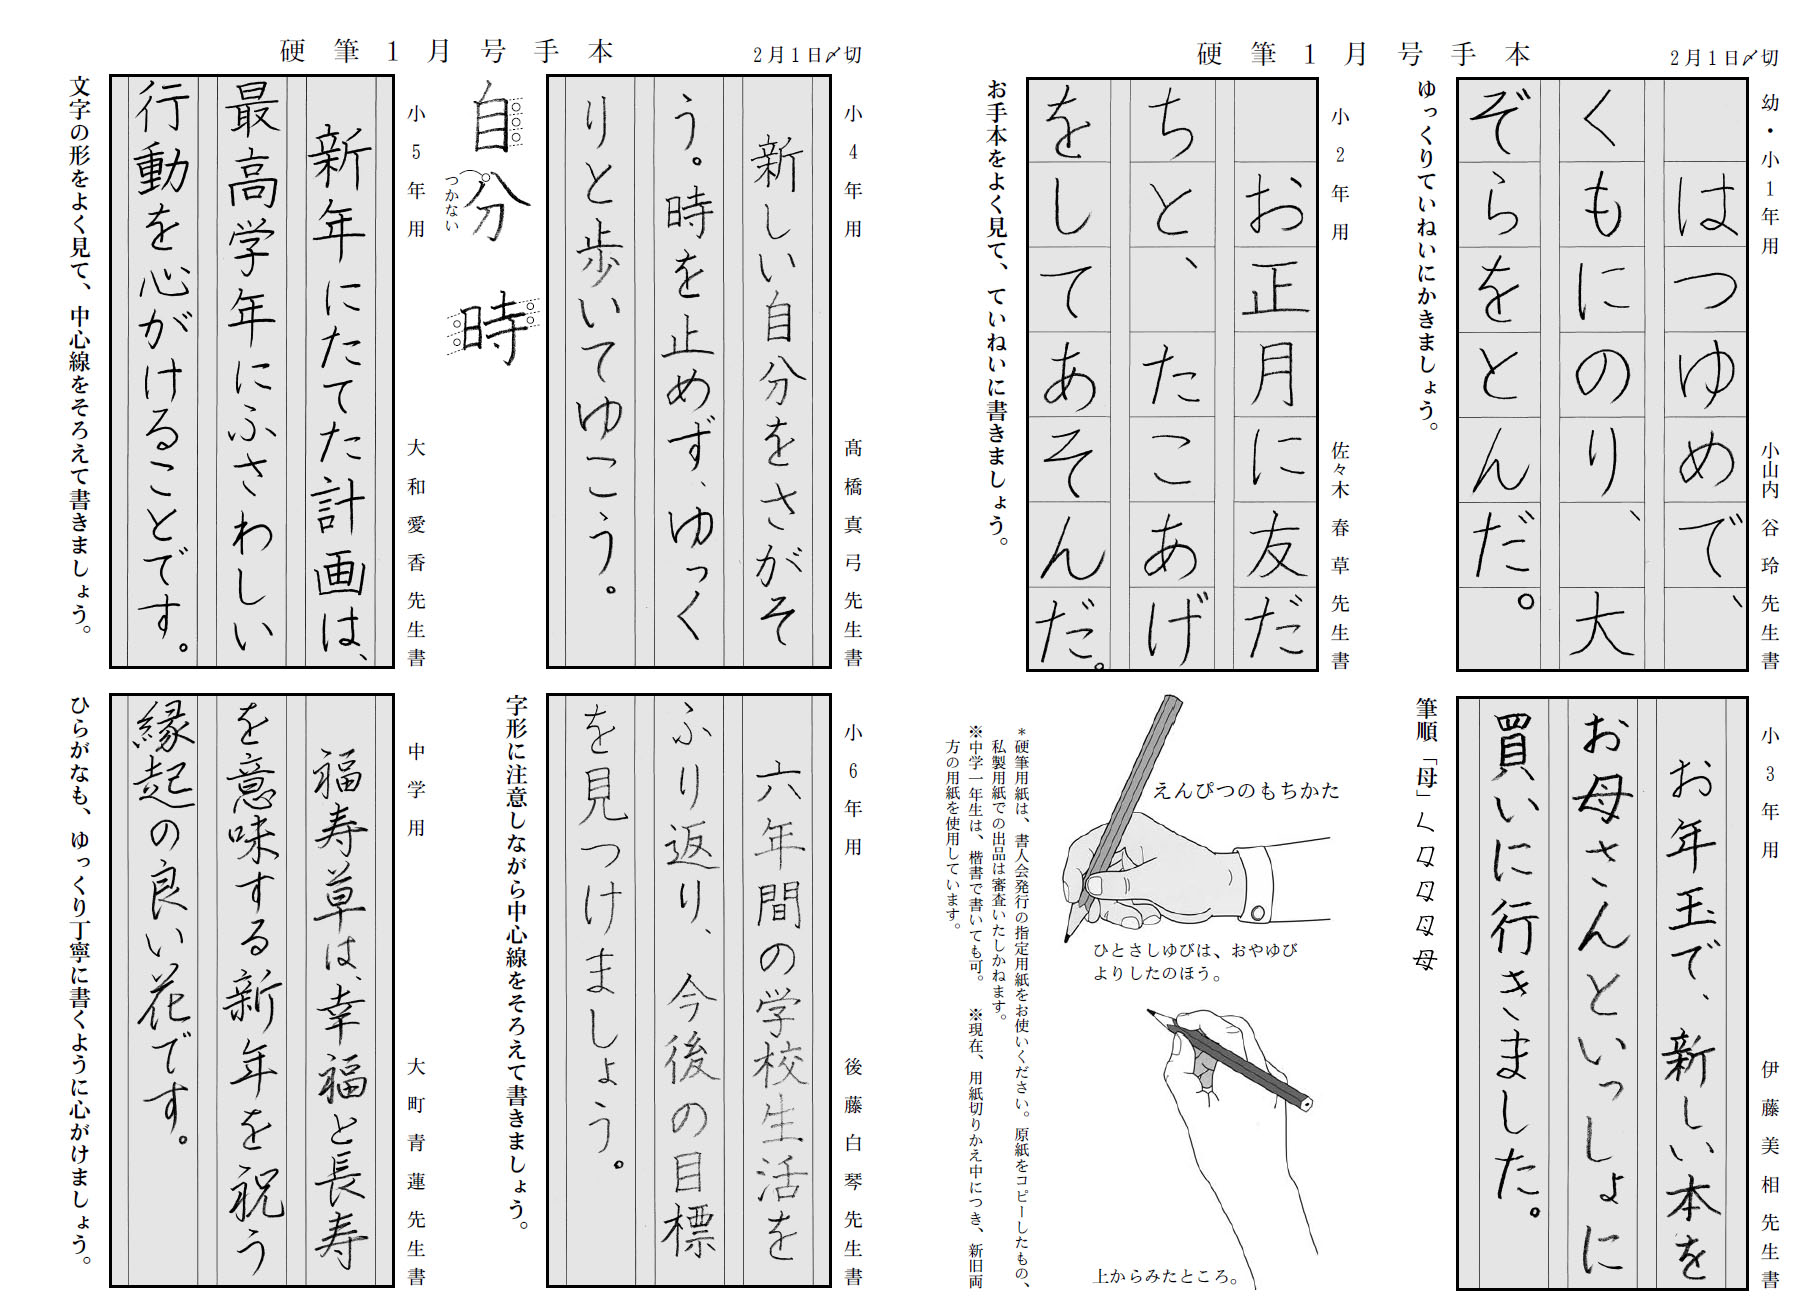 硬筆1月号手本
2月1日〆切
幼・小1年用
小山内谷玲先生書
はつゆめで、
くものり、大
ぞらをとんだ。
ゆっくりていねいにかきましょう。
小2年用
佐々木春草先生書
お正月に友だ
ちと、たこあげ
をしてあそんだ。
お手本をよく見て、ていねいに書きましょう。
小3年用
伊藤美相先生書
お年玉で、新しい本を
お母さんといっしょに
買いに行きました。
筆順「母」
えんぴつのもちかた
ひとさしゆびは、おやゆび
よりしたのほう。
上からみたところ。
*硬筆用紙は、書人会発行の指定用紙をお使いください。原紙をコピーしたもの、
私製用紙での出品は審査いたしかねます。
※中学一年生は、楷書で書いても可。 ※現在、用紙切りかえ中につき、新旧両
方の用紙を使用しています。
硬筆1月号手本
2月1日〆切
小4年用
髙橋真弓先生書
新しい自分をさがそ
う。時を止めず、ゆっく
りと歩いてゆこう。
自分 時
つかない
小5年用
大和愛香先生書
新年にたてた計画は、
最高学年にふさわしい
行動を心がけることです。
文字の形をよく見て、中心線をそろえて書きましょう。
小6年用
後藤白琴先生書
六年間の学校生活を
ふり返り、今後の目標
を見つけましょう。
字形に注意しながら中心線をそろえて書きましょう。
中学用
大町青蓮先生書
福寿草は、幸福と長寿
を意味する新年を祝う
縁起の良い花です。
ひらがなも、ゆっくり丁寧に書くように心がけましょう。